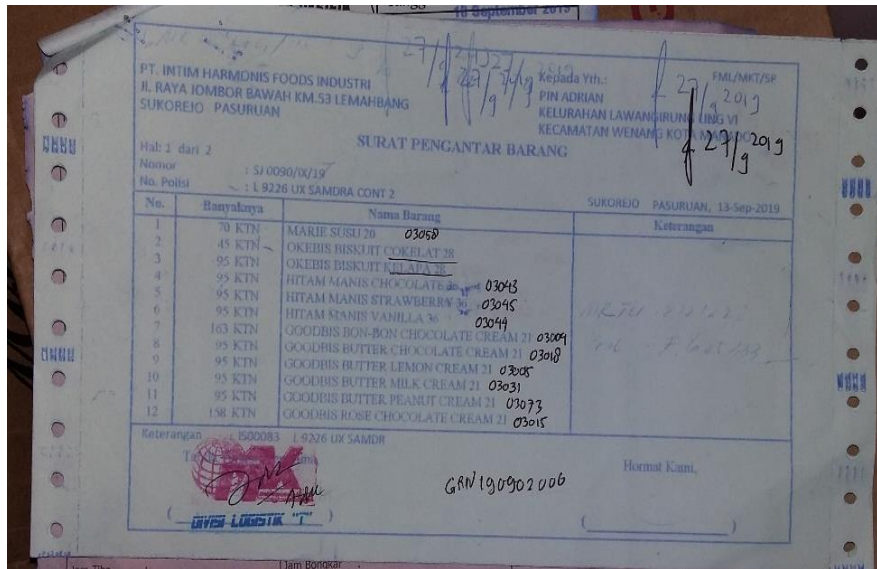 18 September 2019
27/9 2019
27/9 2019
27/9 2019
PT. INTIM HARMONIS FOODS INDUSTRI
JL. RAYA JOMBOR BAWAH KM.53 LEMAHBANG
SUKOREJO PASURUAN
Kepada Yth.:
FML/MKT/SP
PIN ADRIAN
KELURAHAN LAWANGIRUNG LING VI
KECAMATAN WENANG KOTA MANADO
27/9 2019
SURAT PENGANTAR BARANG
Hal: 1 dari 2
Nomor : SJ 0090/IX/19
No. Polisi : L 9226 UX SAMDRA CONT 2
SUKOREJO PASURUAN, 13-Sep-2019
No. Banyaknya Nama Barang Keterangan
1 70 KTN MARIE SUSU 20 03058
2 45 KTN OKEBIS BISKUIT COKELAT 28
3 95 KTN OKEBIS BISKUIT KELAPA 28
4 95 KTN HITAM MANIS CHOCOLATE 36 03043
5 95 KTN HITAM MANIS STRAWBERRY 36 03045
6 95 KTN HITAM MANIS VANILLA 36 03044
7 163 KTN GOODBIS BON-BON CHOCOLATE CREAM 21 03009
8 95 KTN GOODBIS BUTTER CHOCOLATE CREAM 21 03018
9 95 KTN GOODBIS BUTTER LEMON CREAM 21 03005
10 95 KTN GOODBIS BUTTER MILK CREAM 21 03031
11 95 KTN GOODBIS BUTTER PEANUT CREAM 21 03073
12 158 KTN GOODBIS ROSE CHOCOLATE CREAM 21 03015
Keterangan : IS00083 L 9226 UX SAMDR
Hormat Kami,
GRN190902006
DIVISI LOGISTIK "1"
Jam Tiba
Jam Bongkar